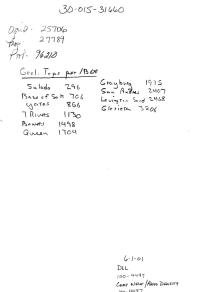 30-015-31660
Ogrid - 25706
Prop - 27789
Pool - 96210
Geol. Tops per/BGA
Salado 296
Base of Salt 706
Yates 866
7 Rivers 1130
Bowers 1498
Queen 1704
Grayburg 1915
San Andres 2407
Lovington Sand 2468
Glorieta 3206
6-1-01
DLL
100-4497